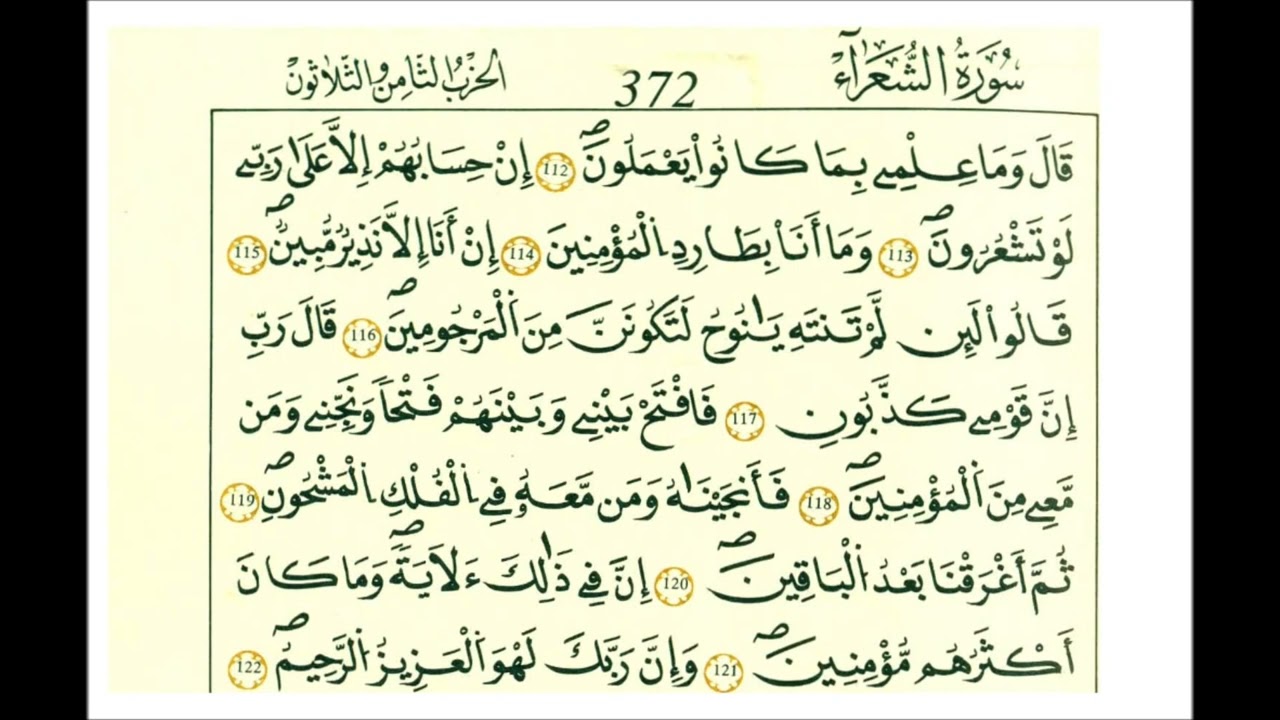 سُورَةُ الشُّعَرَآءِ 372 الحِزْبُ الثَّامِنُ وَالثَّلَاثُونَ
قَالَ وَمَا عِلْمِے بِمَا كَانُواْ يَعْمَلُونَۖ 112 إِنْ حِسَابُهُمْ إِلَّا عَلَىٰ رَبِّے
لَوْ تَشْعُرُونَۖ 113 وَمَا أَنَا بِطَارِدِ اِلْمُؤْمِنِينَ 114 إِنْ أَنَا إِلَّا نَذِيرٌ مُّبِينٌۖ 115
قَالُواْ لَئِن لَّمْ تَنتَهِ يَٰنُوحُ لَتَكُونَنَّ مِنَ اَلْمَرْجُومِينَۖ 116 قَالَ رَبِّ
إِنَّ قَوْمِے كَذَّبُونِ 117 فَافْتَحْ بَيْنِے وَبَيْنَهُمْ فَتْحاً وَنَجِّنِے وَمَن
مَّعِے مِنَ اَلْمُؤْمِنِينَۖ 118 فَأَنجَيْنَٰهُ وَمَن مَّعَهُۥ فِے اِلْفُلْكِ اِلْمَشْحُونِۖ 119
ثُمَّ أَغْرَقْنَا بَعْدُ اُلْبَاقِينَۖ 120 إِنَّ فِے ذَٰلِكَ ءَلَايَةًۖ وَمَا كَانَ
أَكْثَرُهُم مُّؤْمِنِينَۖ 121 وَإِنَّ رَبَّكَ لَهْوَ اَلْعَزِيزُ اُلرَّحِيمُۖ 122